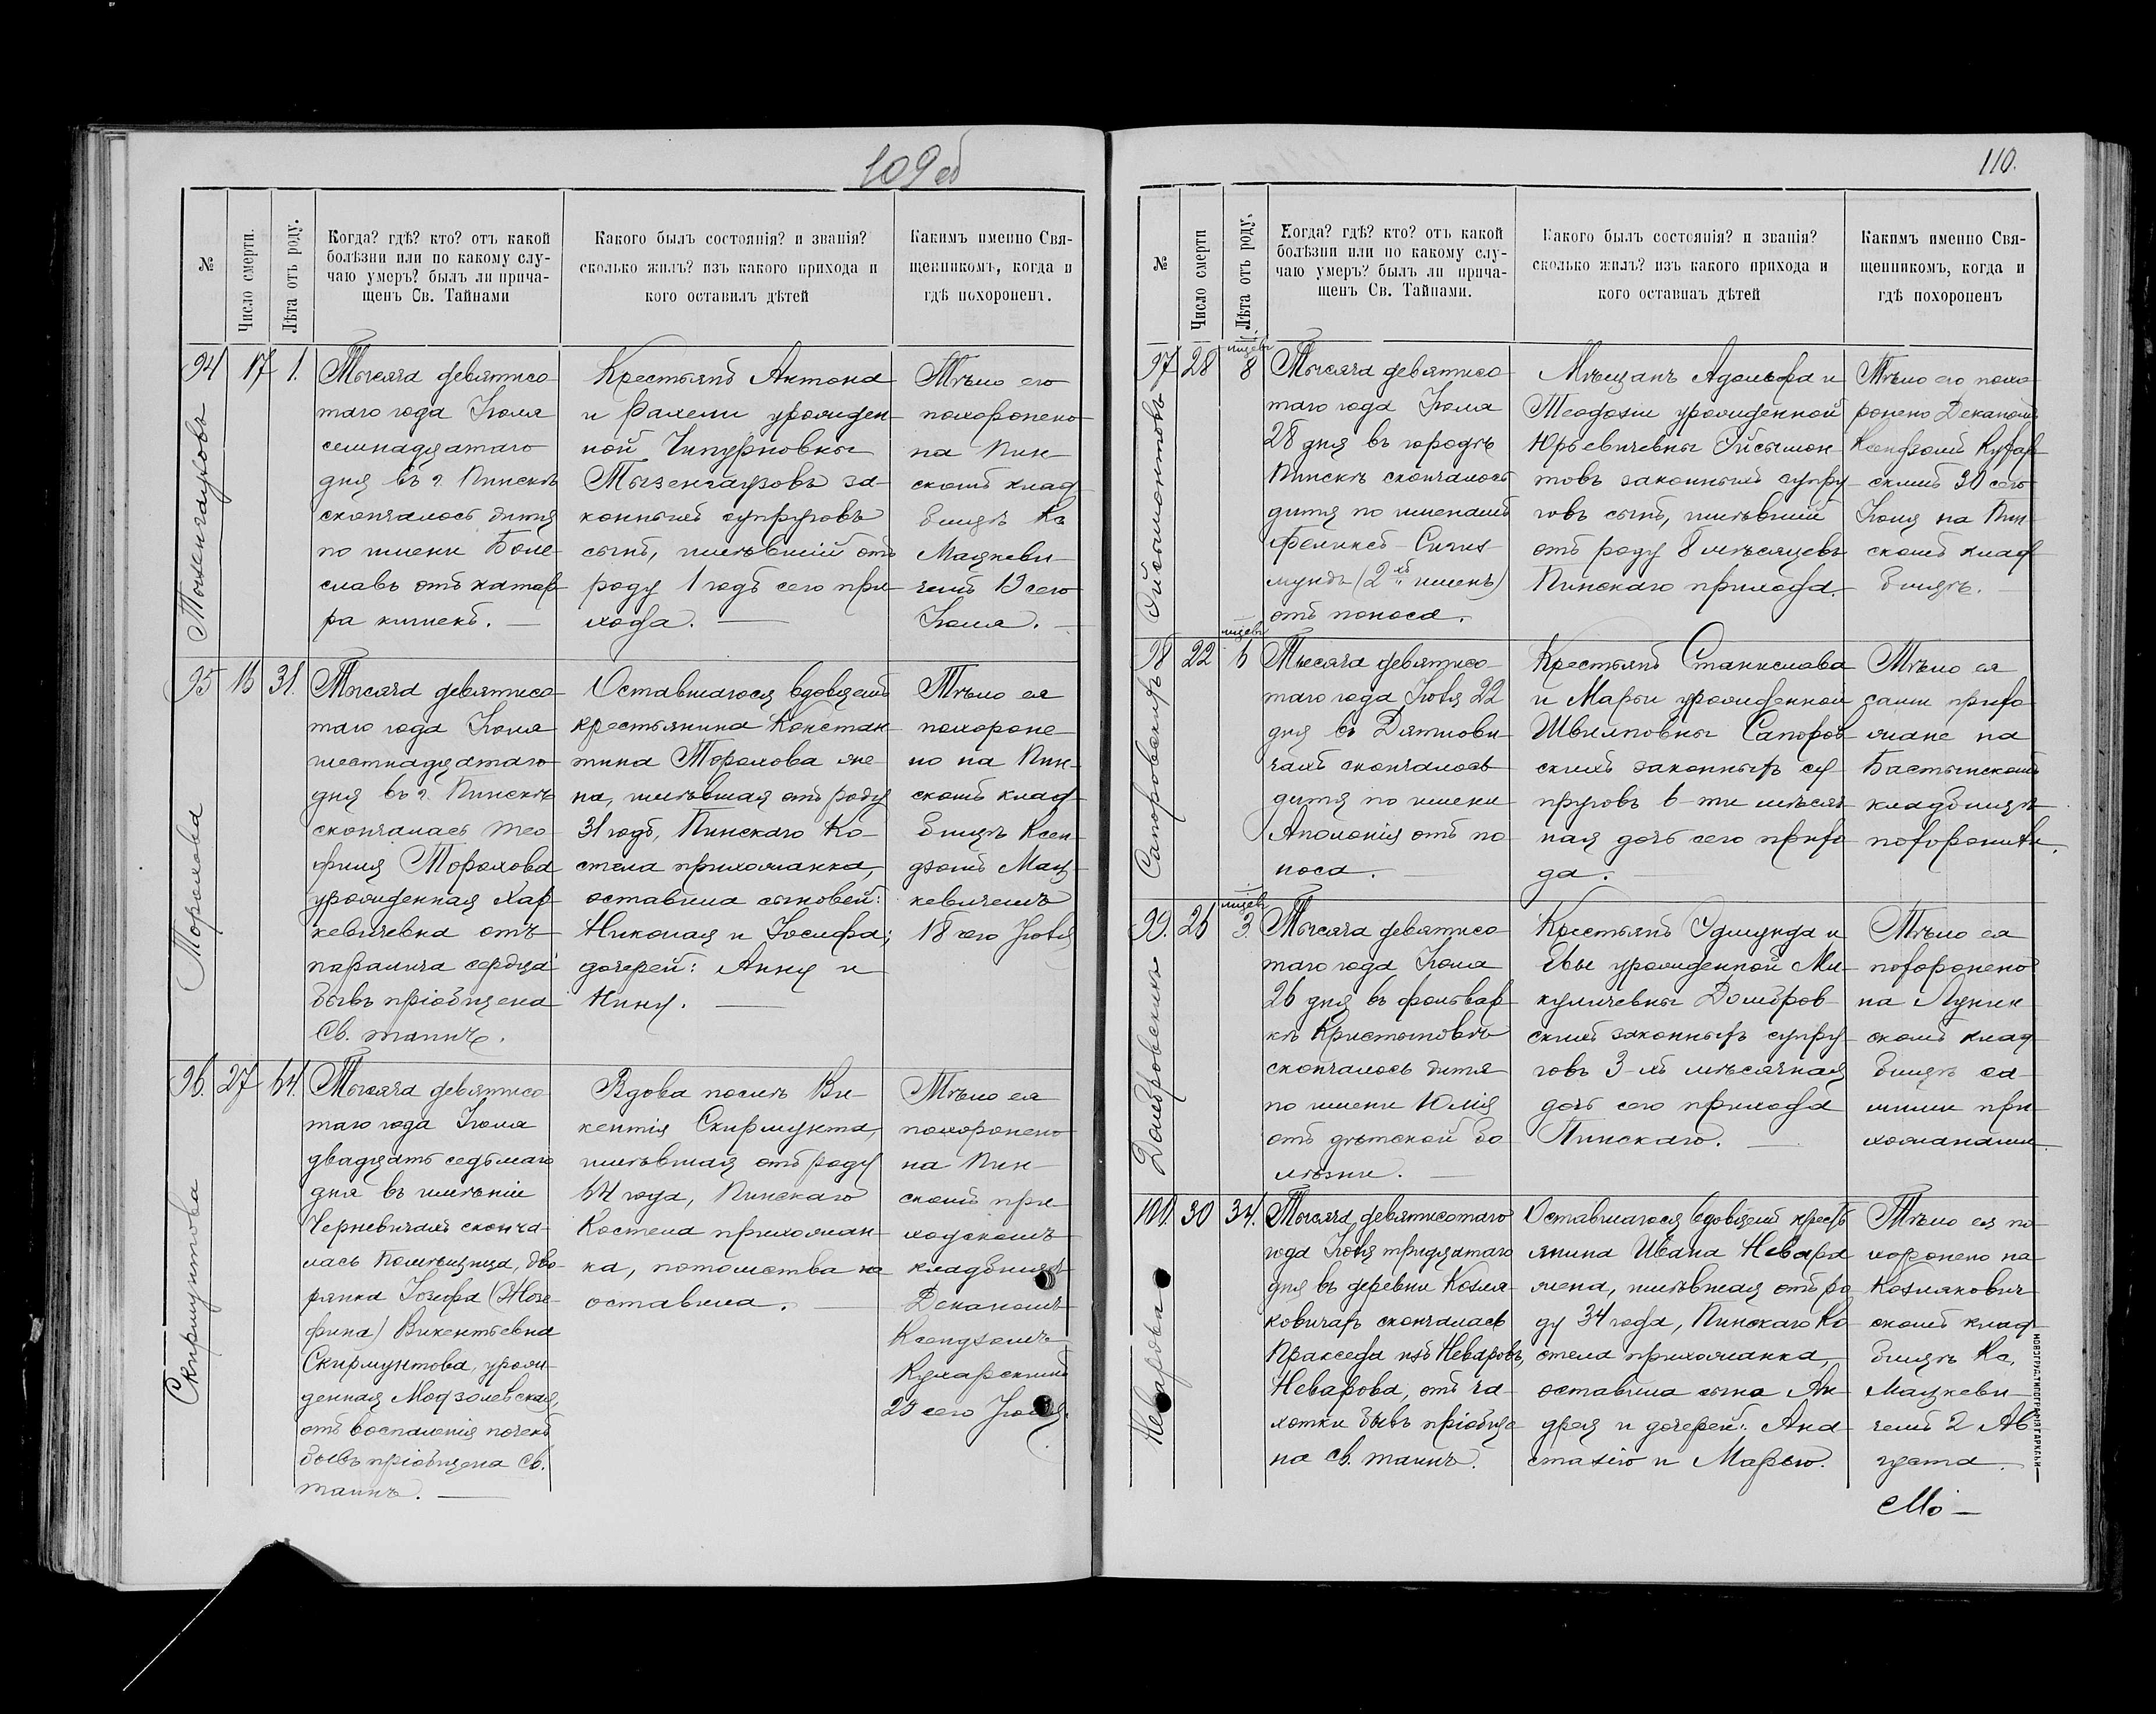 109 об
№
Число смерти.
Лѣта отъ роду.
Когда? гдѣ? кто? отъ какой
болѣзни или по какому слу-
чаю умеръ? былъ ли прича-
щенъ Св. Тайнами
Какого былъ состоянія? и званія?
сколько жилъ? изъ какого прихода и
кого оставилъ дѣтей
Какимъ именно Свя-
щенникомъ, когда и
гдѣ похороненъ.
94
17
1.
Тысяча девятисо
таго года Іюля
семнадцатаго
дня въ г. Пинскѣ
скончалось дитя
по имени Боле-
славъ отъ катар-
ра кишекъ. —
Крестьянъ Антона
и Рахели урожден-
ной
Тызенгаузовъ за-
конныхъ супруговъ
сынъ, имѣвшій отъ
роду 1 годъ сего при-
хода. —
Тѣло его
похоронено
на Пин-
скомъ клад-
бищѣ Кс
Мацкеви-
чемъ 19 сего
Іюля. —
95
31.
Тысяча девятисо
таго года Іюля
шестнадцатаго
дня въ г. Пинскѣ
скончалась Тео-
филя Торохова
урожденная Хар-
кевичевна отъ
паралича сердца
бывъ пріобщена
Св. таинъ.
Оставшагося вдовцемъ
крестьянина Констан
тина Торохова же
на, имѣвшая отъ роду
31 годъ, Пинскаго Ко-
стела прихожанка,
оставила сыновей:
Николая и Іосифа;
дочерей: Анну и
Нину. —
Тѣло ея
похороне-
но на Пин-
скомъ клад-
бищѣ Ксен-
дзомъ Мац-
кевичемъ
18 сего Іюля
Торохова
96.
27
64.
Тысяча девятисо
таго года Іюля
двадцать седьмаго
дня въ имѣніи
Черневичахъ сконча-
лась помѣщица, дво-
рянка Іозефа (Жозе-
фина) Викентьевна
Скирмунтова, урож-
денная Модзолевская,
отъ воспаленія почекъ
бывъ пріобщена Св.
таинъ. —
Вдова послѣ Ви-
кентія Скирмунта,
имѣвшая отъ роду
64 года, Пинскаго
Костела прихожан-
ка, потомства не
оставила. —
Тѣло ея
похоронено
на Пин-
скомъ при-
ходскомъ
кладбищѣ
Деканомъ
Ксендзомъ
Кухарскимъ
29 сего Іюля.
Скирмунтова
110.
№
Число смерти
Лѣта отъ роду.
Когда? гдѣ? кто? отъ какой
болѣзни или по какому слу-
чаю умеръ? былъ ли прича-
щенъ Св. Тайнами.
Какого былъ состоянія? и званія?
сколько жилъ? изъ какого прихода и
кого оставилъ дѣтей
Какимъ именно Свя-
щенникомъ, когда и
гдѣ похороненъ
97
28
8
Тысяча девятисо
таго года Іюля
28 дня въ городѣ
Пинскѣ скончалось
дитя по именамъ
Феликсъ - Сигиз
мундъ (2хъ именъ)
отъ поноса.
Мѣщанъ Адольфа и
Теодозіи урожденной
Юрьевичевны Ойсымон-
товъ законныхъ супру-
говъ сынъ, имѣвшій
отъ роду 8 мѣсяцевъ
Пинскаго прихода.
Тѣло его похо-
ронено Деканомъ
Ксендзомъ Кухар-
скимъ 30 сего
Іюля на Пин-
скомъ клад-
бищѣ. —
Ойсымонтовъ
98
22
6
Тысяча девятисо
таго года Іюля 22
дня въ Дятлови-
чахъ скончалось
дитя по имени
Аполонія отъ по
носа. —
Крестьянъ Станислава
и Марьи урожденной
Сапоров
скихъ законныхъ су
пруговъ 6-ти мѣсяч
ная дочь сего прихо
да. —
Тѣло ея
сами прихо
жане на
Бастынскомъ
кладбищѣ
похоронили.
Сапоровскихъ
99.
26
3.
Тысяча девятисо
таго года Іюля
26 дня въ фольвар-
кѣ Кристиновѣ
скончалось дитя
по имени Юлія
отъ дѣтской бо
лѣзни. —
Крестьянъ Эдмунда и
Евы урожденной Ми-
куличевны Домбров-
скихъ законныхъ супру-
говъ 3-хъ мѣсячная
дочь сего прихода
Пинскаго. —
Тѣло ея
похоронено
на Лунин-
скомъ клад
бищѣ са-
мими при-
хожанами.
Домбровскихъ
30
34.
Тысяча девятисотаго
года Іюля тридцатаго
дня въ деревни Козля-
ковичахъ скончалась
Пракседа изъ Неваровъ,
Неварова, отъ ча-
хотки бывъ пріобще
на Св. таинъ.
Оставшагося вдовцемъ кресть
янина Ивана Невара
жена, имѣвшая отъ ро
ду 34 года, Пинскаго Ко
стела прихожанка,
оставила сына Ан-
дрея и дочерей: Ана
стазію и Марью.
Тѣло ея по-
хоронено на
Козлякович
скомъ клад-
бищѣ Кс.
Мацкеви-
чемъ 2 Ав
густа.
Неварова